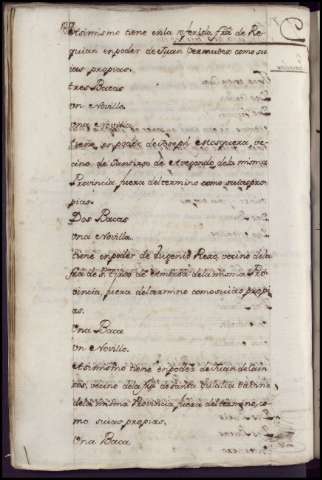 Asimismo tiene en la referida frâ de Re
quian en poder de Juan Vermudez como su
ias propias.
tres Bacas
Un Novillo.
Una Novilla
tiene en poder de Joseph Mosquera, ve
cino de de la misma
Provincia fuera del termino como suias pro
pias.
Dos Bacas
Una Novilla.
tiene en poder de Eugenio Rexo, vecino de la
frâ de Sn de la misma Pro
vincia, fuera del termino como suias propi
as.
Una Baca
Un Novillo.
Asimismo tiene en poder de Juan
vecino de la frâ de Santa Eulalia
de la misma Provincia, fuera del termino, co
mo suias propias.
Una Baca